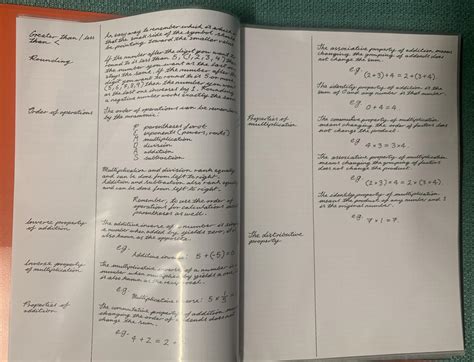 Greater than / less
than <
An easy way to remember which is which is
that the small side of the symbol
be pointing toward the smaller value
Rounding
If the number after the digit you want to
round to is less than 5 (0, 1, 2, 3, 4)
the number you want as the last one
stays the same. If the number after the
digit you want to round to is 5 or more
(5, 6, 7, 8, 9) then the number you want
as the last one increases by 1. Rounding
a negative number works exactly the same
Order of operations
The order of operations can be remembered
by the mnemonic:
P parentheses / root
E exponents (powers, roots)
M multiplication
D division
A addition
S subtraction
Multiplication and division rank equally
and can be done from left to right.
Addition and subtraction also rank equally
and can be done from left to right.
Remember, to use the order of
operations for calculations
parentheses as well.
Inverse property
of addition
The additive inverse of a number is
a number when added by yields zero, it is
also known as the opposite.
e.g.
Additive inverse: 5 + (-5) = 0
Inverse property
of multiplication
The multiplicative inverse of a number is a
number when multiplied by yields a
is also known as the reciprocal.
e.g.
Multiplicative inverse: 5 ×
Properties of
addition
The commutative property of addition means
changing the order of addends does not
change the sum.
e.g.
4 + 2 = 2
The associative property of addition means
changing the grouping of addends does
not change the sum
e.g. (2+3)+4 = 2+(3+4).
The identity property of addition is the
sum of 0 and any number is that number.
e.g.
0+4 = 4
Properties of
multiplication
The commutative property of multiplication
means changing the order of factors does
not change the product.
e.g.
4 × 3 = 3 × 4.
The associative property of multiplication
means changing the grouping of factors
does not change the product.
e.g.
(2×3)×4 = 2×(3×4).
The identity property of multiplication
means the product of any number and 1
is the original number.
e.g. 7 × 1 = 7.
The distributive
property